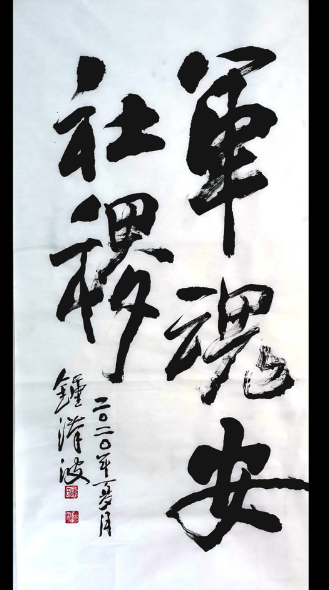 軍魂安
社稷
二〇二〇年夏月
鍾漢波